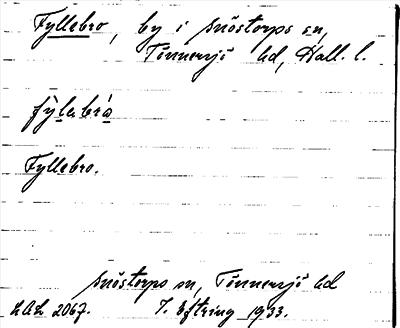 Fyllebro, by i Snöstorps sn,
Tönnersjö hd, Hall. l.
Fyllebro.
Snöstorps sn, Tönnersjö hd
LAL 2067. 1933.